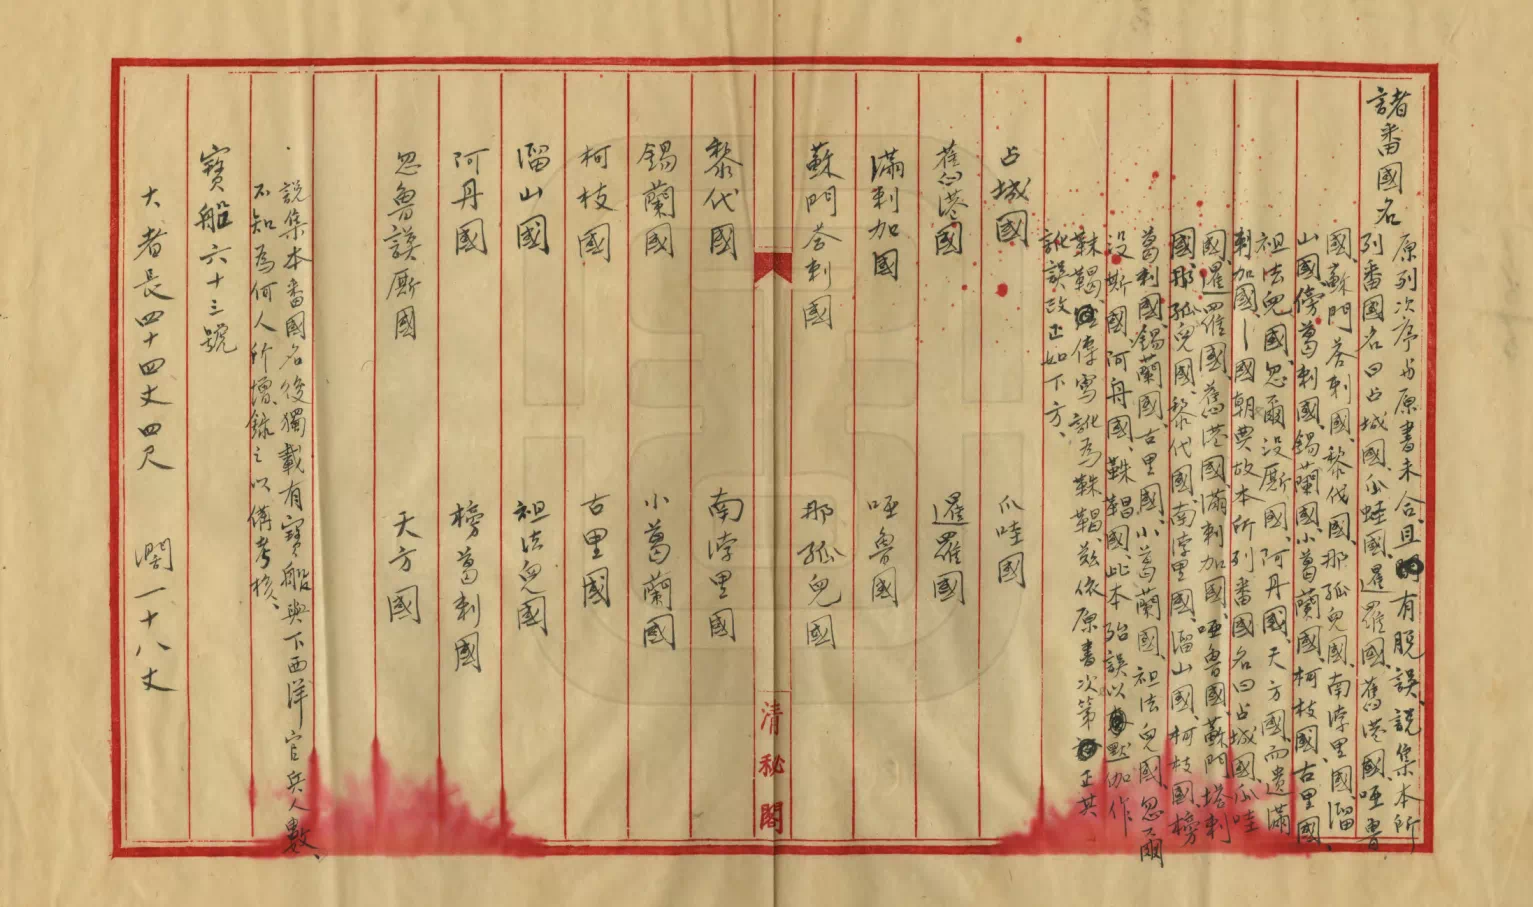 諸番國名
原列次序与原書未合且有脫誤、說集本所
列番國名曰占城國、瓜蛙國、暹羅國、舊港國、啞魯
國、蘇門荅剌國、黎伐國、那孤兒國、南浡里國、溜
山國、傍葛剌國、錫蘭國、小葛蘭國、柯枝國、古里國
祖法兒國、忽爾没厮國、阿丹國、天方國、而遺滿
剌加國、一國朝典故本所列番國名曰占城國、瓜哇
國、暹羅國、舊港國、滿剌加國、啞魯國、蘇門塔剌
國、那孤兒國、黎代國、南浡里國、溜山國、柯枝國、榜
葛剌國、錫蘭國、古里國、小葛蘭國、祖法兒國、忽爾
没斯國、阿丹國、靺鞨國、此本殆誤以默伽作
靺鞨、傳寫訛為靺鞨、玆依原書次第正其
訛誤改正如下方、
占城國 爪哇國
舊港國 暹羅國
滿剌加國 啞魯國
蘇門荅剌國 那孤兒國
黎代國 南浡里國
錫蘭國 小葛蘭國
柯枝國 古里國
溜山國 祖法兒國
阿丹國 榜葛剌國
忽魯謨厮國 天方國
說集本番國名後獨載有寶船與下西洋官兵人數、
不知為何人所增錄之以備考核、
寶船六十三號
大者長四十四丈四尺 濶一十八丈
清秘閣